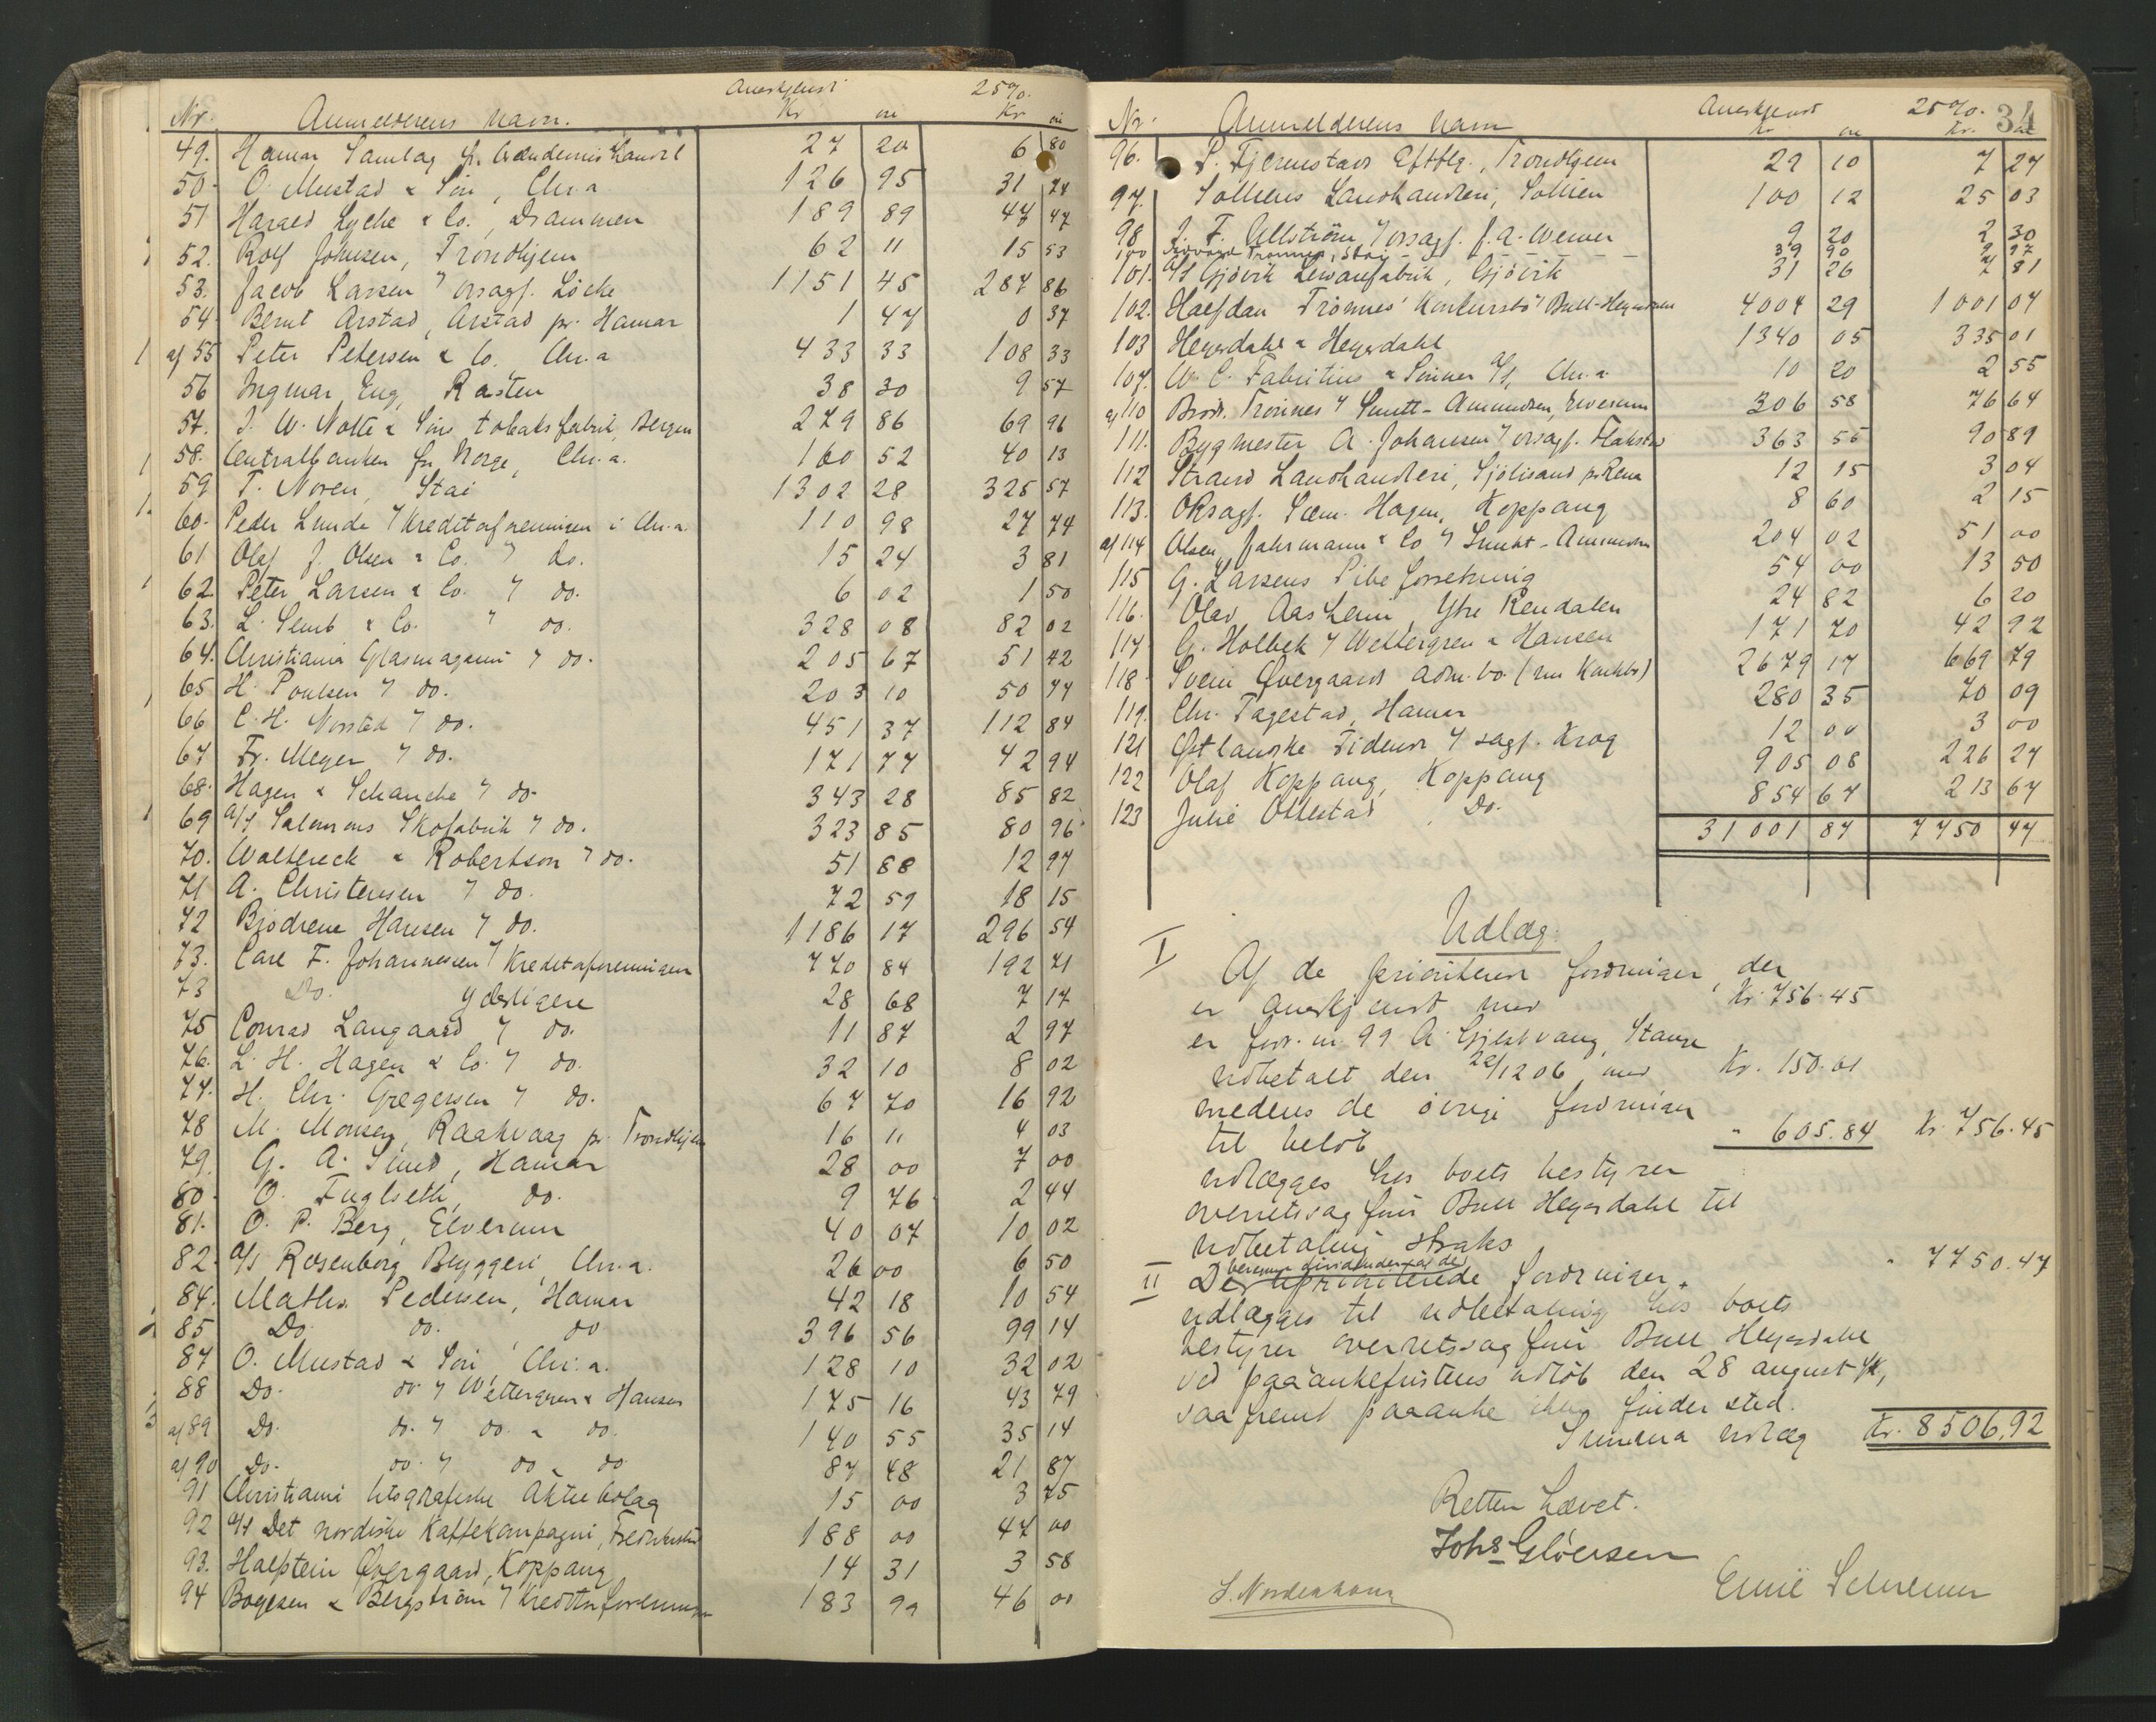 Nr. Anmelderens navn. Anerkjendt Kr øre 25%. Kr. øre
49. Hamar Samlag 27 20 6 80
50. O. Mustad & Søn, Chr.a 126 95 31 74
51 Harald Lyche & Co., Drammen 189 89 47 47
52. Rolf Johnsen, Trondhjem 62 11 15 53
53. Jacob Larsen v orsagf. Löcke 1151 45 287 86
54. Bernt Arstad, Arstad pr. Hamar 1 47 0 37
af 55 Peter Petersen & Co. Chr.a 433 33 108 33
56 Ingmar Eng, Rasten 38 30 9 57
57. J. W. Nolte & Søns tobaksfabrik, Bergen 279 86 69 96
58. Centralbanken for Norge, Chr.a. 160 52 40 13
59 T. Noren, Stai 1302 28 325 57
60. Peder Lunde v Kreditforeningen i Chr.a. 110 98 27 74
61 Olaf J. Olsen & Co. v do. 15 24 3 81
62. Peter Larsen & Co. v do. 6 02 1 50
63. L. Semb & Co. " do. 328 08 82 02
64. Christiania Glasmagasin v do. 205 67 51 42
65 H. Poulsen v do. 203 10 50 77
66 C. H. Norsted v do. 451 37 112 84
67 Fr. Meyer v do. 171 77 42 94
68. Hagen & Schanche v do. 343 28 85 82
69 A/S Salomons Skofabrik v do. 323 85 80 96
70. Woltereck & Robertson v do. 51 88 12 97
71 A. Christensen v do. 72 59 18 15
72 Brödrene Hansen v do. 1186 17 296 54
73. Carl F. Johannessen v Kreditforeningen 770 84 192 71
73 Do. yderligere 28 68 7 17
75 Conrad Langaard v do. 11 87 2 97
76. L. H. Hagen & Co. v do. 32 10 8 02
77. H. Chr. Gregersen v do. 67 70 16 92
78 M. Monsen, Raakvaag pr. Trondhjem 16 11 4 03
79. G. A. Lund, Hamar 28 00 7 00
80. O. Fuglseth, do. 9 76 2 44
81. O. P. Berg, Elverum 40 07 10 02
82. A/S Rosenborg Bryggeri, Chr.a. 26 00 6 50
84. Maths. Pedersen, Hamar 42 18 10 54
85 Do. do. do 396 56 99 14
87 O. Mustad & Søn, Chr.a. 128 10 32 02
88 Do. do v Wettergren & Hansen 175 16 43 79
af 89 Do. do. v do. & do. 140 55 35 14
af 90 Do. do. v do & do 87 48 21 87
91 Christiania litografiske Aktiebolag 15 00 3 75
92 A/S Det nordiske Kaffekompagni, Fredrikstad 188 00 47 00
93. Halstein Øvergaard, Koppang 14 31 3 58
94 Bogesen & Bergström v Kreditorforeningen 183 99 46 00
34
Nr. Anmelderens navn Anerkjendt Kr øre 25%. Kr. øre
96. P. Fjermstads Eftflg., Trondhjem 29 10 7 27
97. Solliens Landhandleri, Sollien 100 12 25 03
98 J. F. Ullström v orsagf. f. a. Werner 9 20 2 30
100 Trönnes, Stai 39 90 9 97
101. A/S Gjövik Lervarefabrik, Gjövik 31 26 7 81
102. Halfdan Trönnes' Konkursbo v Bull-Heyerdahl 4004 29 1001 07
103 Heyerdahl & Heyerdahl 1340 05 335 01
107. W. C. Fabritius & Sönner A/S, Chr.a 10 20 2 55
af 110 Brdr. Trönnes v Smitt-Amundsen, Elverum 306 58 76 64
111. Bygmester A. Johansen v orsagf. Flakstad 363 55 90 89
112 Strand Landhandleri, Sjölisand pr Rena 12 15 3 04
113. ORsagf. Sæm. Hagen, Koppang 8 60 2 15
af 114 Olsen, Jahrmann & Co v Smitt-Amundsen 204 02 51 00
115 G. Larsens Pibeforretning 54 00 13 50
116. Olav Aasheim, Ytre Rendalen 24 82 6 20
117. G. Holbek v Wettergren & Hansen 171 70 42 92
118 Svein Øvergaards adm. bo. 2679 17 669 79
119. Chr. Tagestad, Hamar 280 35 70 09
121 Østlandske Tidende v sagf. Krog 12 00 3 00
122 Olaf Koppang, Koppang 905 08 226 27
123 Julie Ottestad, Do. 854 67 213 67
31001 87 7750 47
Udlæg:
I Af de prioriterede fordringer, der
er anerkjendt med Kr. 756.45
er ford. nr. 99 A. Gjestvang, Stange
udbetalt den 22/12 06 med Kr. 150.61
medens de övrige fordringer
til belöb " 605.84 Kr. 756.45
udlægges hos boets bestyrer
overretssagförer Bull Heyerdahl til
udbetaling straks
II De uprioriterede fordringer " 7750.47
udlægges til udbetaling hos boets
bestyrer overretssagförer Bull Heyerdahl
ved paaankefristens udlöb den 28 august
saafremt paaanke ikke finder sted.
Summa udlæg Kr. 8506.92
Retten hævet.
Johs Glöersen
S. Nordenhaug
Emil Schreiner